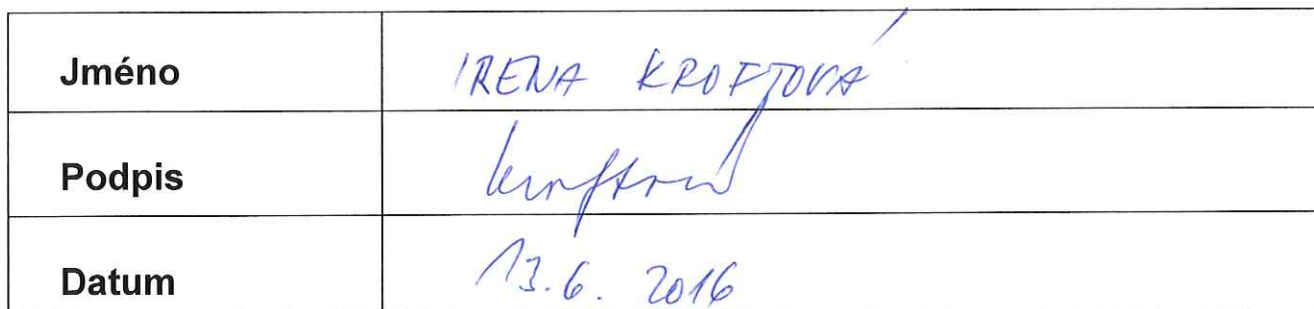 Jméno IRENA KROFTOVÁ
Podpis Kroftová
Datum 13.6. 2016